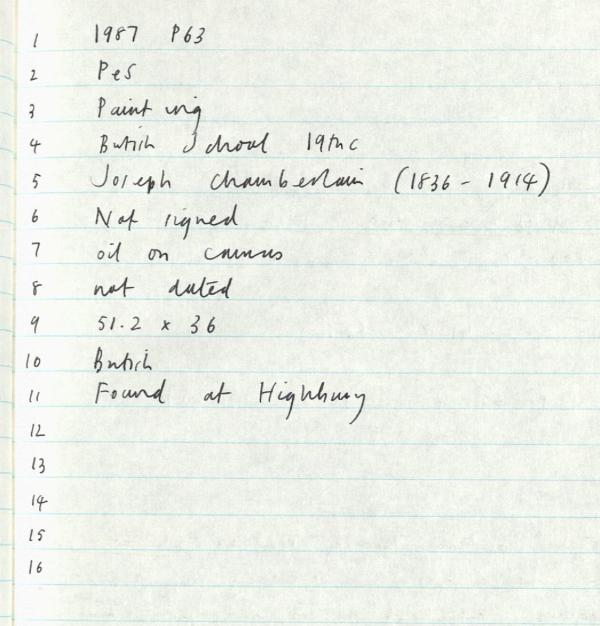 1 1987 P63
2 Pes
3 Painting
4 British School 19th c
5 Joseph Chamberlain (1836 - 1914)
6 Not signed
7 oil on canvas
8 not dated
9 51.2 x 36
10 British
11 Found at Highbury
12
13
14
15
16